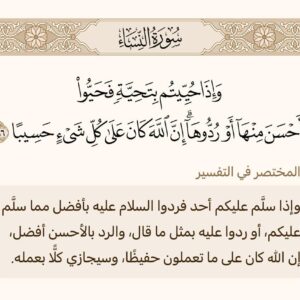 سُورَةُ النِّسَاءِ
وَإِذَا حُيِّيتُم بِتَحِيَّةٍ فَحَيُّوا۟
بِأَحْسَنَ مِنْهَآ أَوْ رُدُّوهَآ ۗ إِنَّ ٱللَّهَ كَانَ عَلَىٰ كُلِّ شَىْءٍ حَسِيبًا
المختصر في التفسير
وإذا سلَّم عليكم أحد فردوا السلام عليه بأفضل مما سلَّم
عليكم، أو ردوا عليه بمثل ما قال، والرد بالأحسن أفضل،
إن الله كان على ما تعملون حفيظًا، وسيجازي كلًّا بعمله.